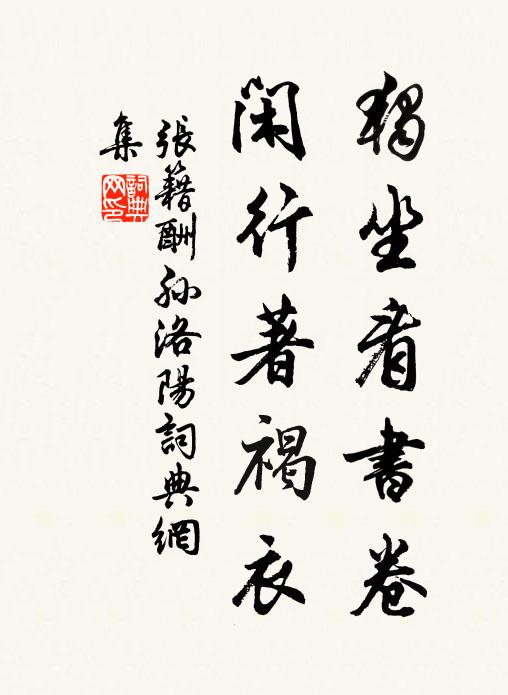 獨坐看書卷
閑行著褐衣
張籍酬孙洛陽詞典網
集
詞典網印